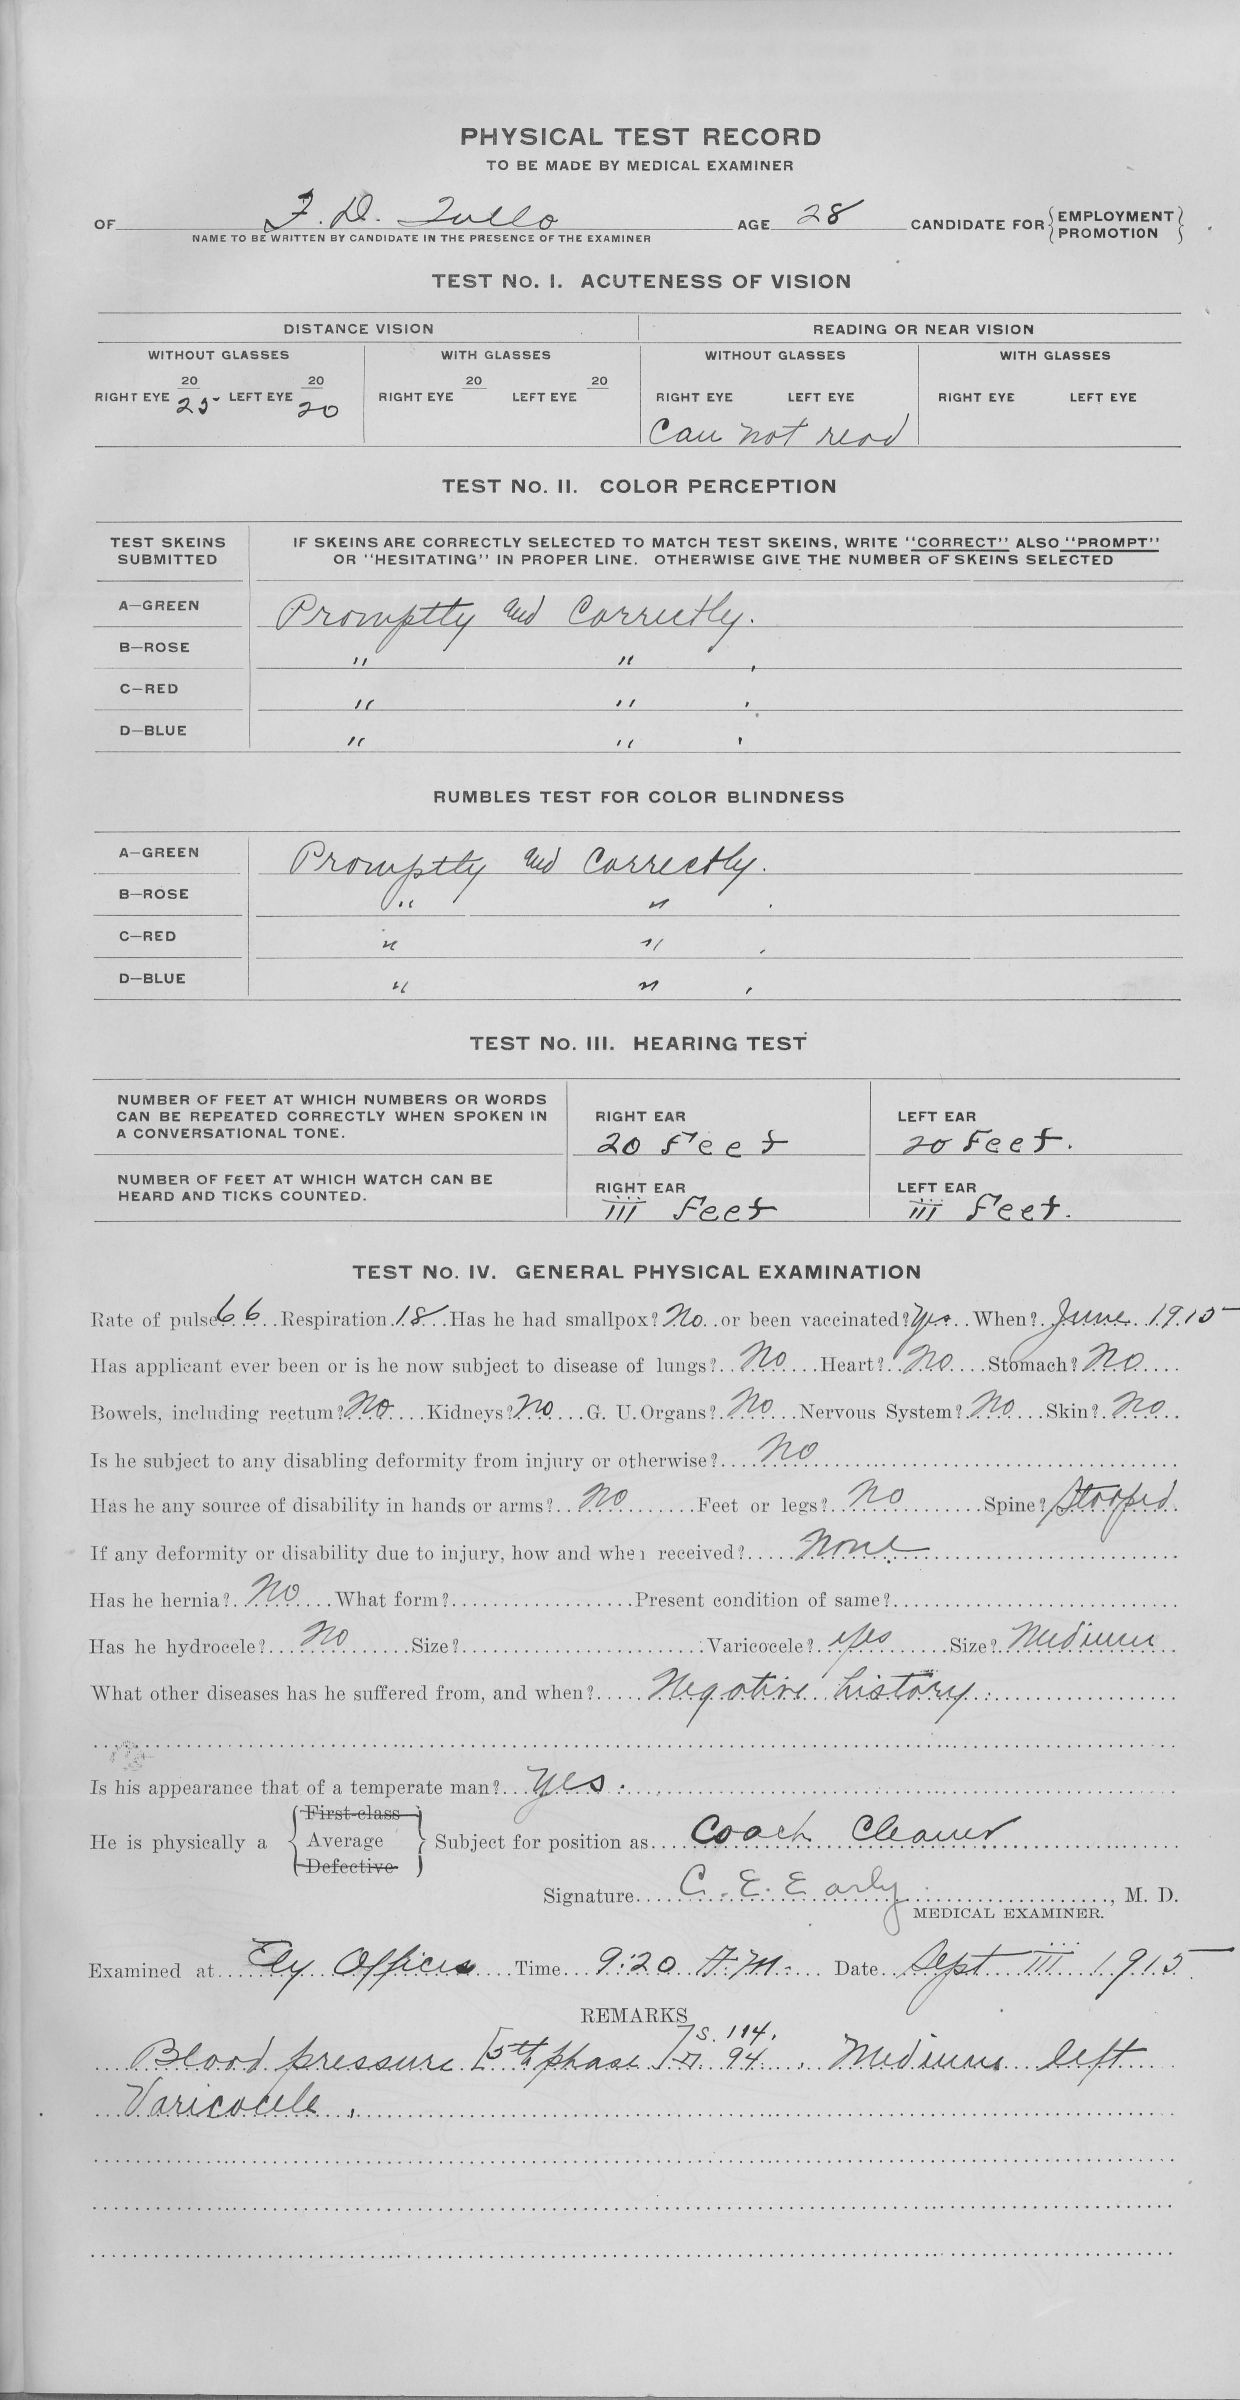 PHYSICAL TEST RECORD
TO BE MADE BY MEDICAL EXAMINER
OF F. D. Tullo AGE 28 CANDIDATE FOR { EMPLOYMENT PROMOTION }
NAME TO BE WRITTEN BY CANDIDATE IN THE PRESENCE OF THE EXAMINER
TEST No. I. ACUTENESS OF VISION
DISTANCE VISION READING OR NEAR VISION
WITHOUT GLASSES WITH GLASSES WITHOUT GLASSES WITH GLASSES
RIGHT EYE 20/25 LEFT EYE 20/20 RIGHT EYE 20 LEFT EYE 20 RIGHT EYE LEFT EYE RIGHT EYE LEFT EYE
Can not read
TEST No. II. COLOR PERCEPTION
TEST SKEINS SUBMITTED
IF SKEINS ARE CORRECTLY SELECTED TO MATCH TEST SKEINS, WRITE "CORRECT" ALSO "PROMPT"
OR "HESITATING" IN PROPER LINE. OTHERWISE GIVE THE NUMBER OF SKEINS SELECTED
A—GREEN Promptly and Correctly.
B—ROSE " "
C—RED " "
D—BLUE " "
RUMBLES TEST FOR COLOR BLINDNESS
A—GREEN Promptly and Correctly.
B—ROSE " "
C—RED " "
D—BLUE " "
TEST No. III. HEARING TEST
NUMBER OF FEET AT WHICH NUMBERS OR WORDS
CAN BE REPEATED CORRECTLY WHEN SPOKEN IN
A CONVERSATIONAL TONE.
RIGHT EAR 20 Feet LEFT EAR 20 Feet.
NUMBER OF FEET AT WHICH WATCH CAN BE
HEARD AND TICKS COUNTED.
RIGHT EAR III Feet LEFT EAR III Feet.
TEST No. IV. GENERAL PHYSICAL EXAMINATION
Rate of pulse 66 Respiration 18 Has he had smallpox? No or been vaccinated? Yes When? June 1915
Has applicant ever been or is he now subject to disease of lungs? No Heart? No Stomach? No
Bowels, including rectum? No Kidneys? No G. U. Organs? No Nervous System? No Skin? No
Is he subject to any disabling deformity from injury or otherwise? No
Has he any source of disability in hands or arms? No Feet or legs? No Spine? Stooped
If any deformity or disability due to injury, how and when received? None
Has he hernia? No What form? Present condition of same?
Has he hydrocele? No Size? Varicocele? yes Size? Medium
What other diseases has he suffered from, and when? Negative history.
Is his appearance that of a temperate man? Yes.
He is physically a { First-class Average Defective } Subject for position as Coach Cleaner
Signature C. E. Early, M. D.
MEDICAL EXAMINER.
Examined at Ely Offices Time 9:20 A.M. Date Sept III 1915
REMARKS
Blood pressure [5th phase] S. 114. D 94. Medium left
Varicocele.